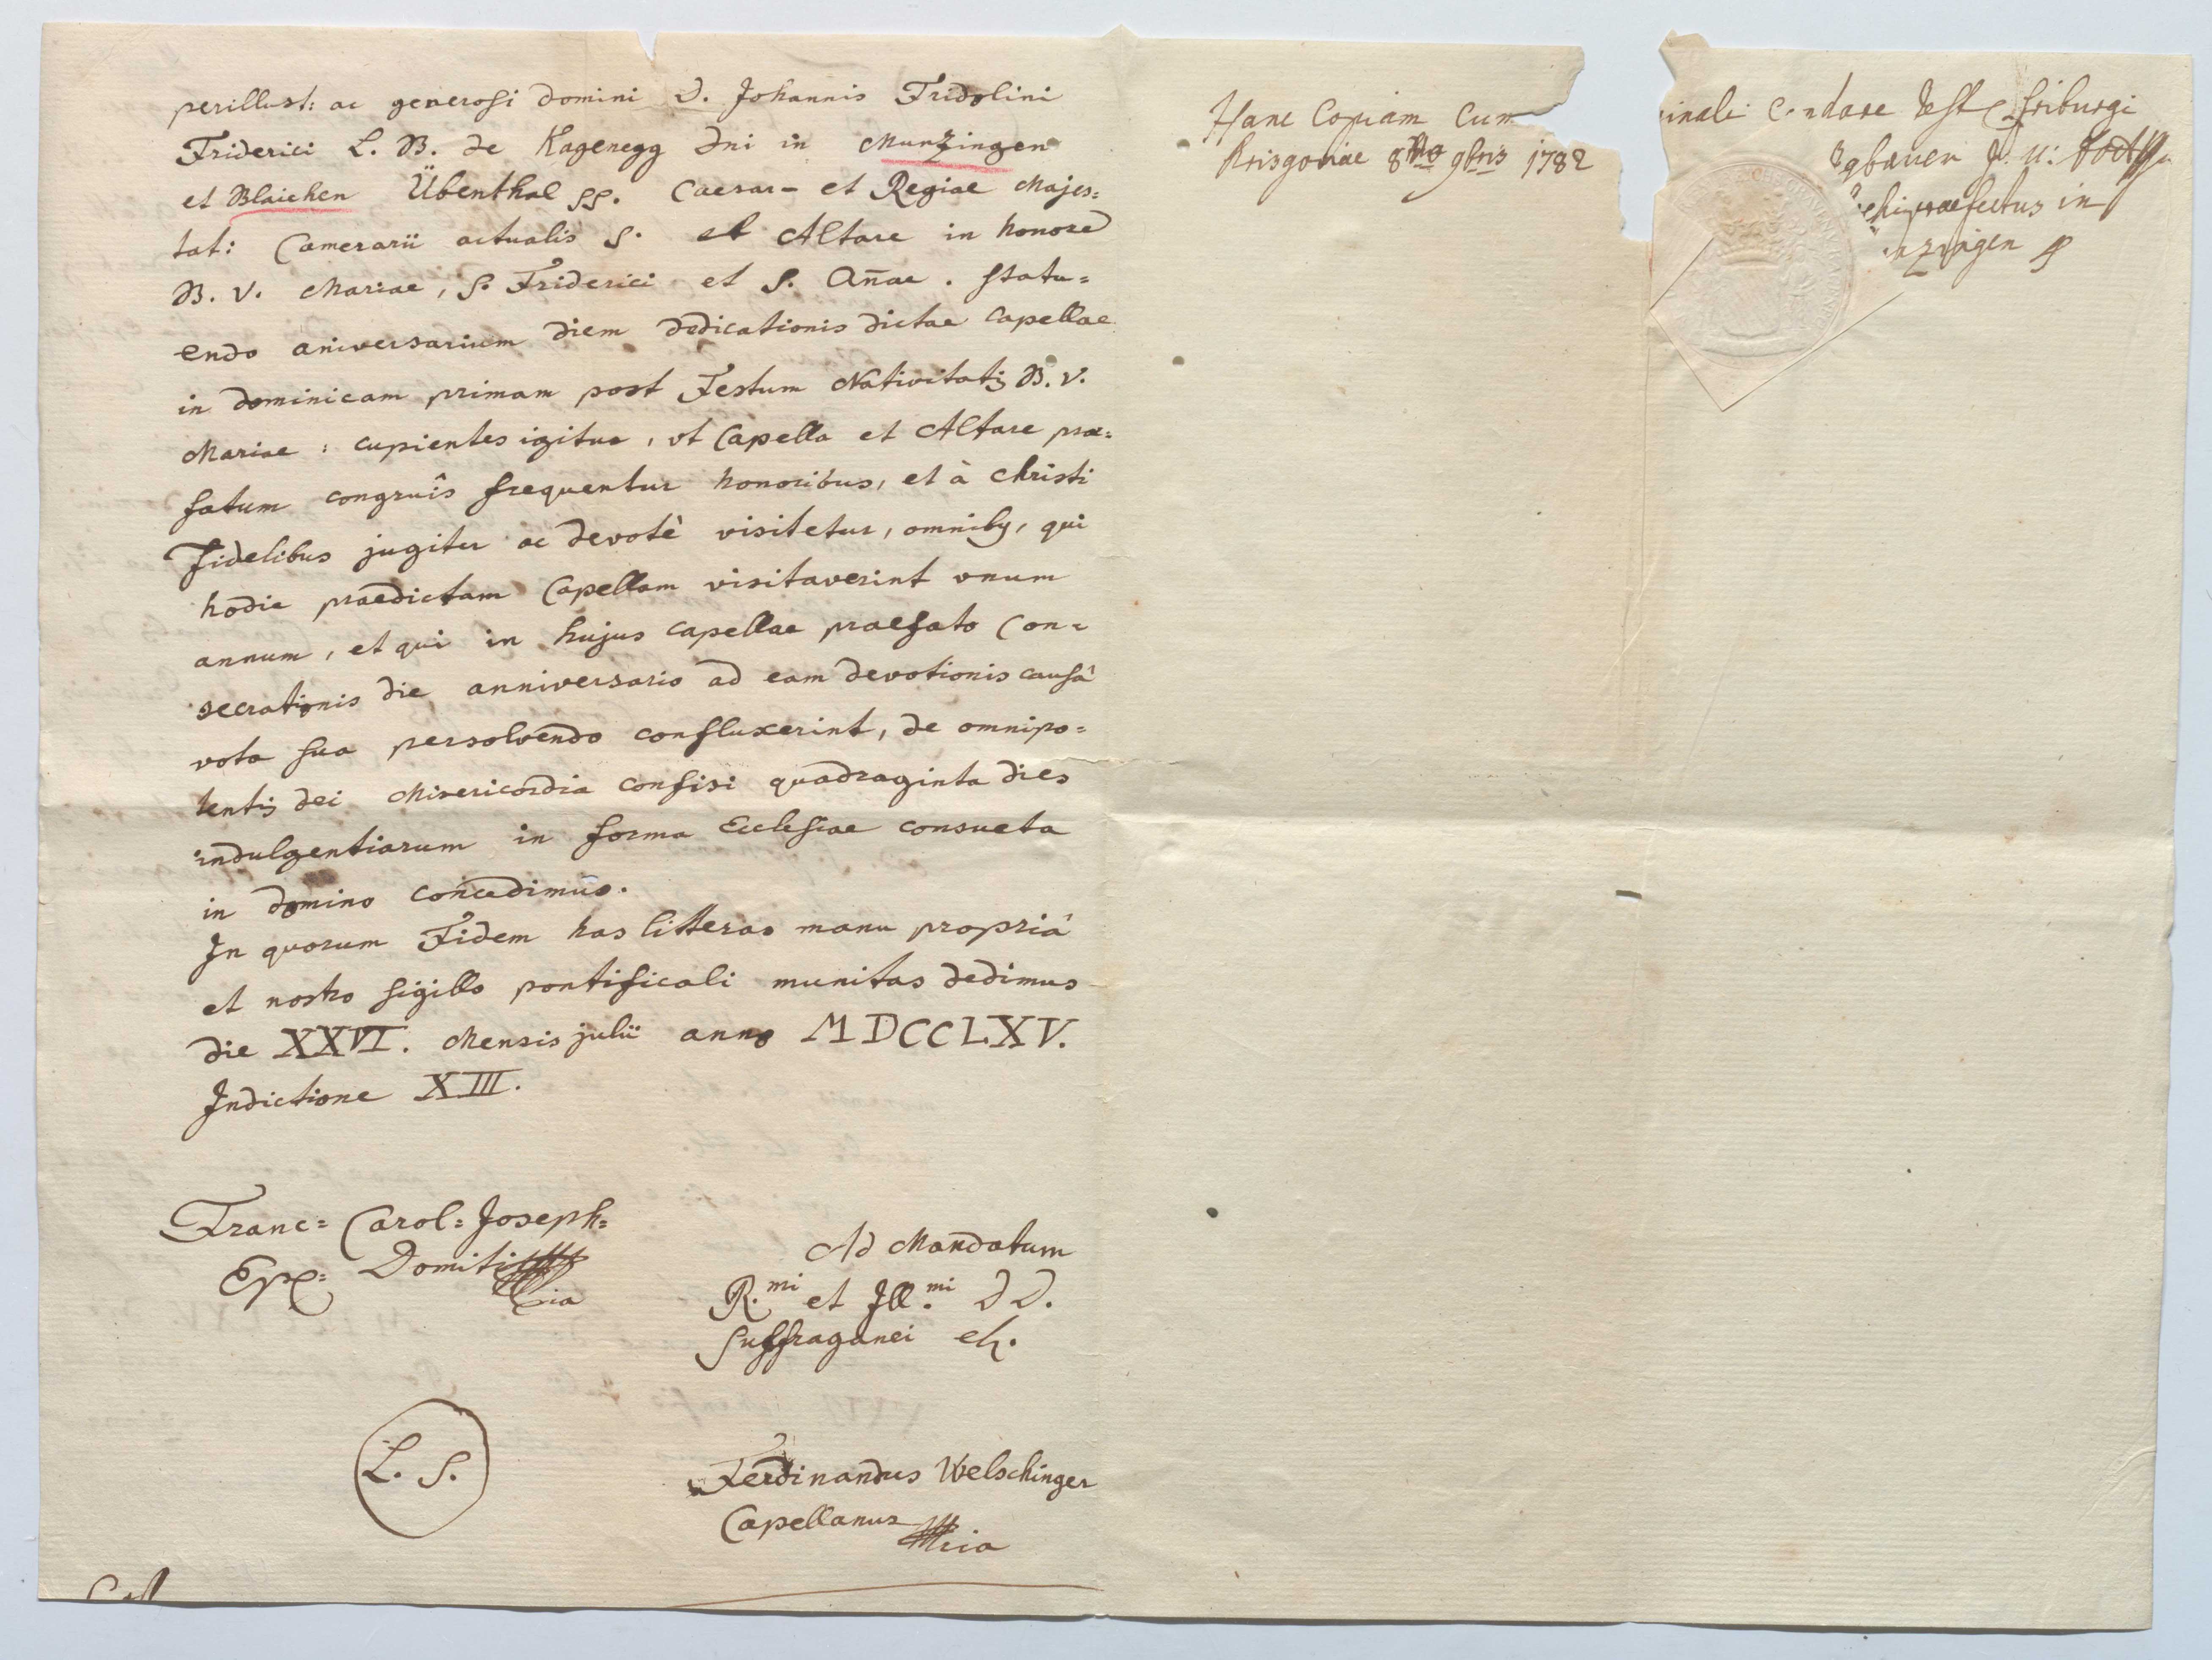 perillust: ac generosi Domini D. Johannis Fridolini
Friderici L. B. de Kagenegg Dni in Munzingen
et Blaichen Übenthal SS. Caesar- et Regiae Majes=
tat: Camerarii actualis S. et Altare in honore
B. V. Mariae, S. Friderici et S. Añae. statu=
endo aniversarium diem dedicationis dictae capellae
in dominicam primam post Festum Nativitatis B. V.
Mariae: cupientes igitur, vt Capella et Altare prae=
fatum congruîs frequentur honoribus, et à Christi
Fidelibus jugiter ac devotè visitetur, omnibq, qui
hodie praedictam Capellam visitaverint vnum
annum, et qui in hujus capellae praefato Con=
secrationis die anniversario ad eam devotionis causâ
vota sua persolvendo confluxerint, de omnipo=
tentis dei Misericordia confisi quadraginta dies
indulgentiarum in forma Ecclesiae consueta
in domino concedimus.
In quorum Fidem has litteras manu propriâ
et nostro sigillo pontificali munitas dedimus
die XXVI. Mensis julii anno MDCCLXV.
Indictione XIII.
Franc= Carol= Joseph=
Epc= Domiti
pia
Ad Mandatum
R.mi et Ill.mi DD.
Suffraganei
L. S.
Ferdinandus Welschinger
Capellanus
mia
Hanc Copiam Cum
Brisgoviae 8va 9bris 1782
inali Friburgi
J. U:
praefectus in
nzingen